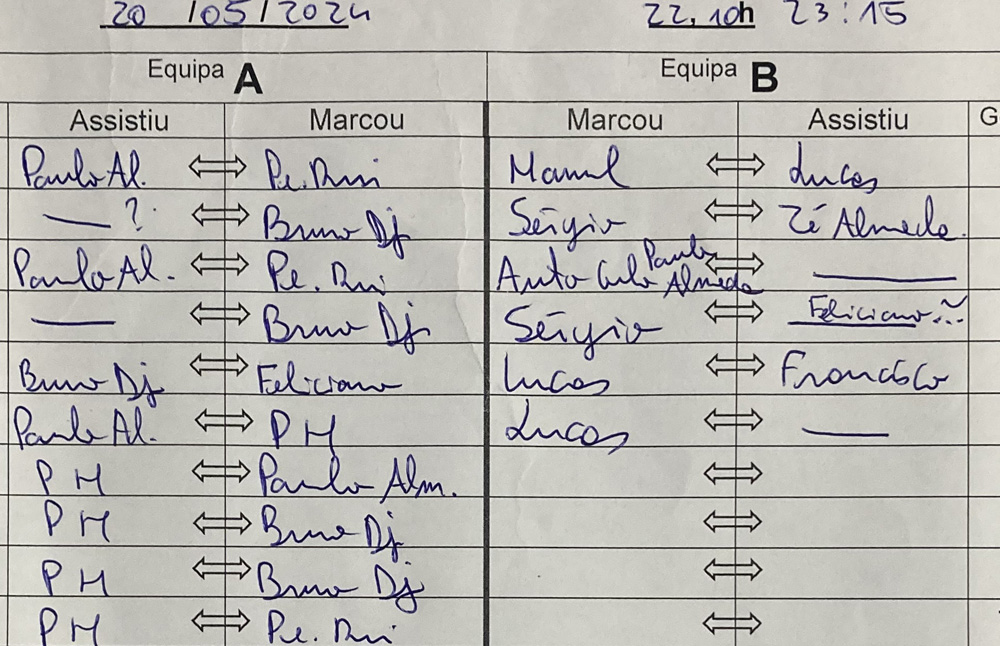 20/05/2024 22,10h 23:15
Equipa A Equipa B
Assistiu Marcou Marcou Assistiu G
Paulo Al. Pe. Rui Manuel Lucas
— ? Bruno Dj Sérgio Zé Almeida.
Paulo Al. Pe. Rui Auto Golo Paulo Almeida —
— Bruno Dj Sérgio Feliciano
Bruno Dj Feliciano Lucas Francisco
Paulo Al. PH Lucas —
PH Paulo Alm.
PH Bruno Dj
PH Bruno Dj
PH Pe. Rui